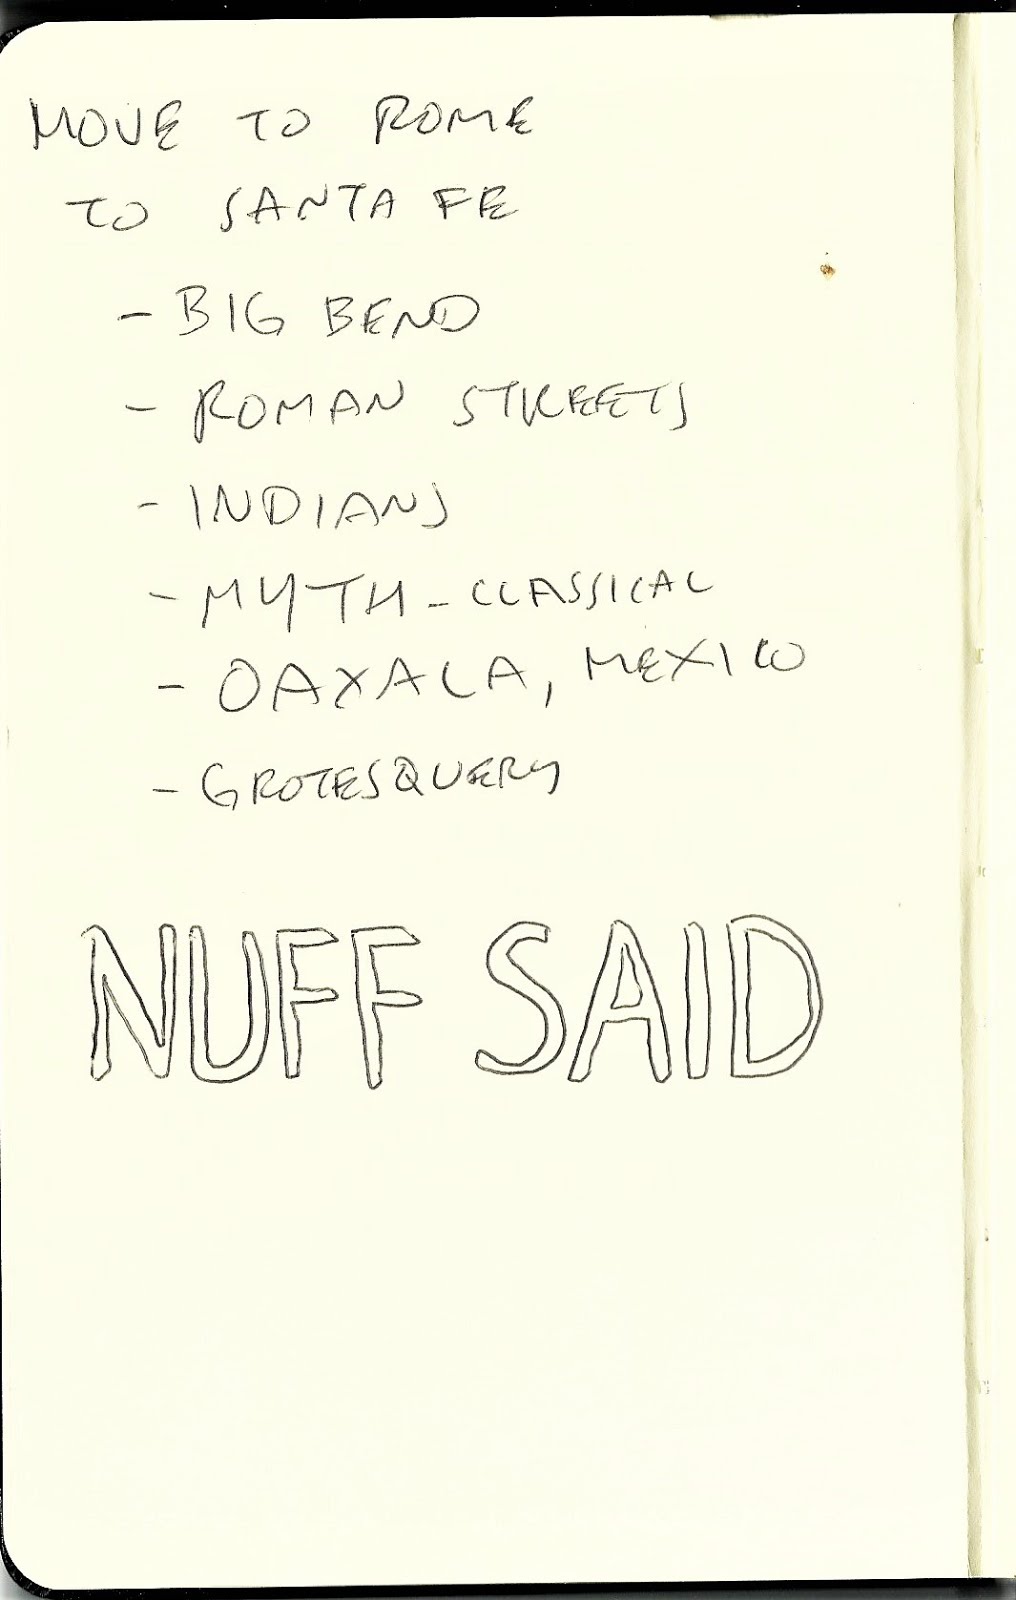 MOVE TO ROME
TO SANTA FE
- BIG BEND
- ROMAN STREETS
- INDIANS
- MYTH - CLASSICAL
- OAXALA, MEXICO
- GROTESQUERY
NUFF SAID